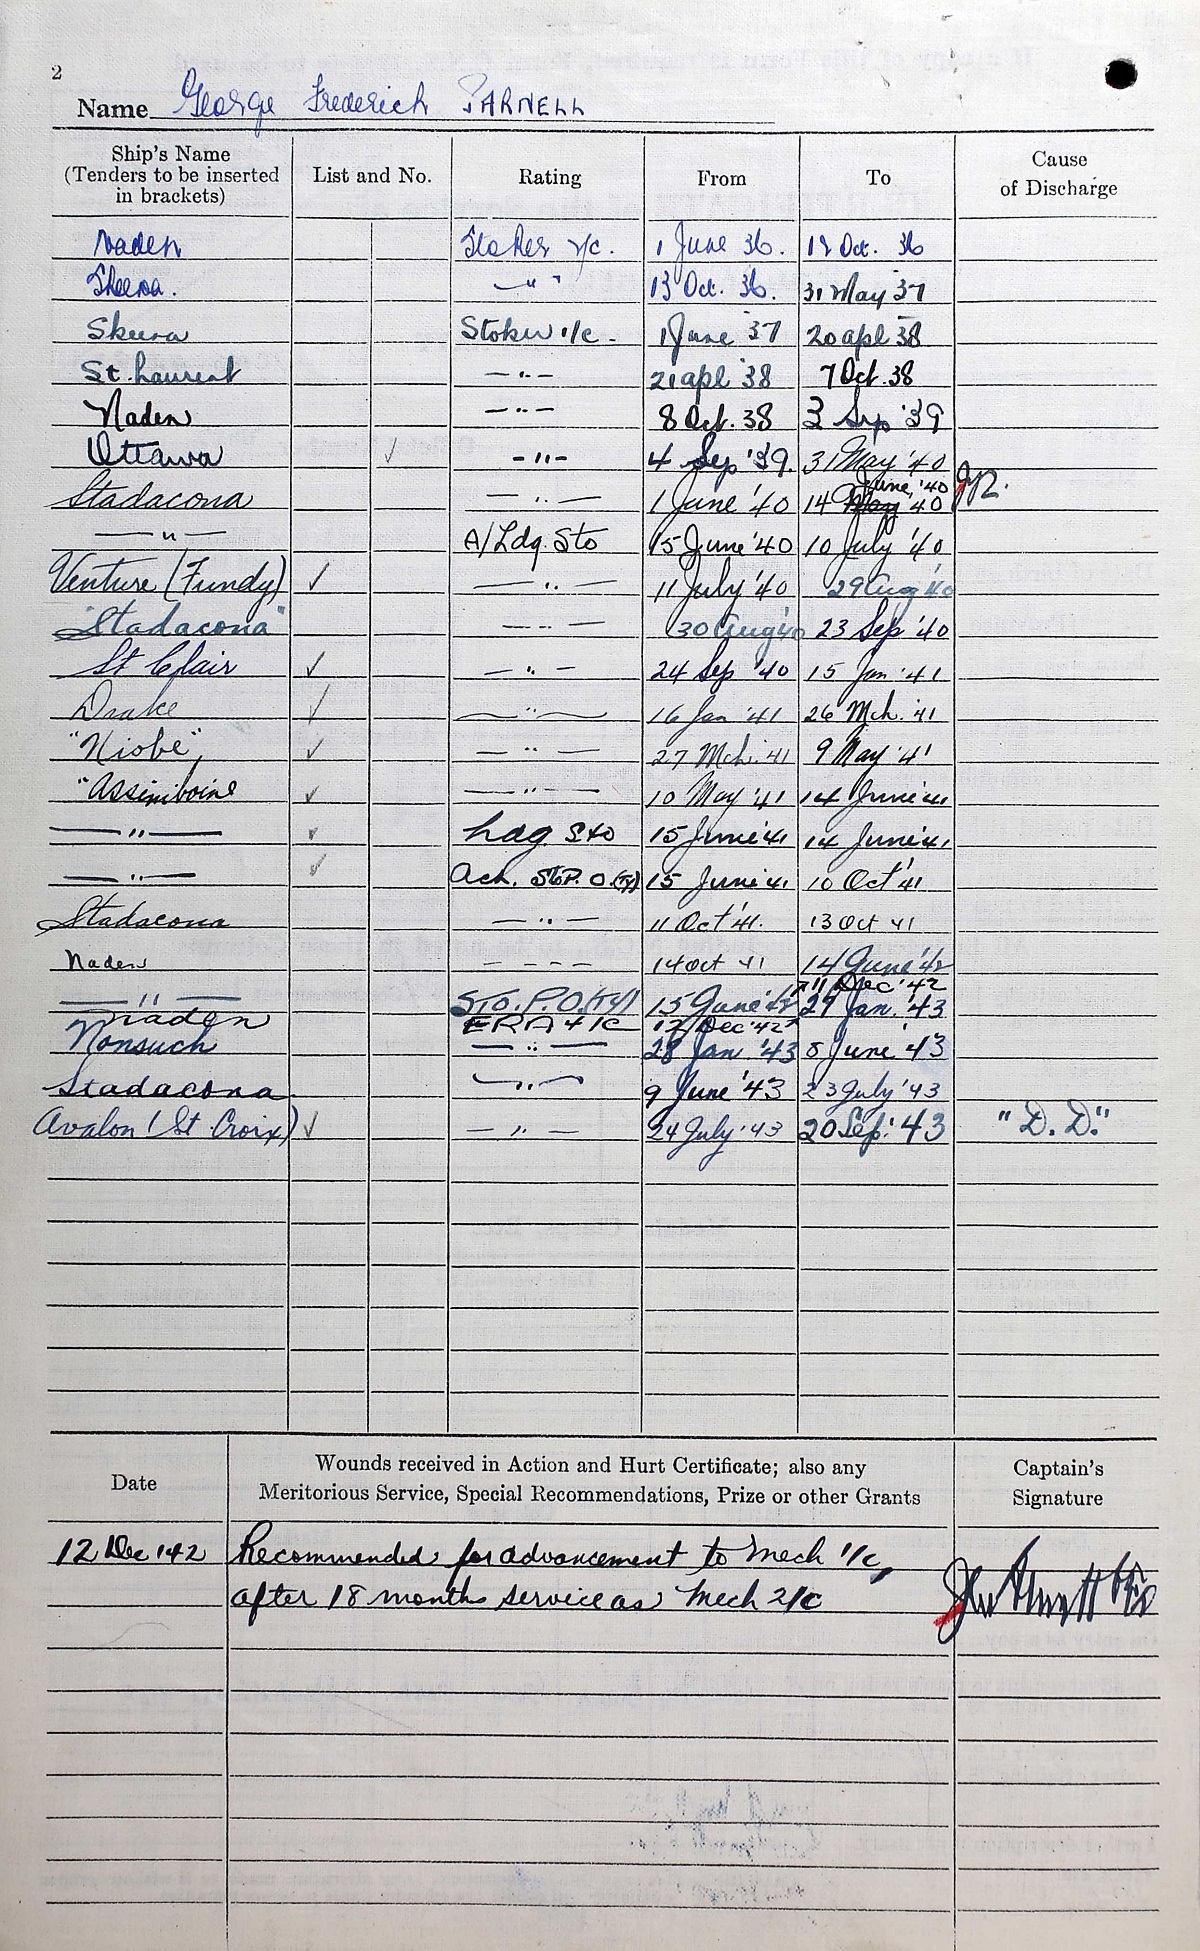 2
Name George Frederick PARNELL
Ship's Name
(Tenders to be inserted
in brackets)
List and No.
Rating
From
To
Cause
of Discharge
Naden Stoker 2/c. 1 June 36. 12 Oct. 36
Skeena. " " 13 Oct. 36. 31 May 37
Skeena Stoker 1/c. 1 June '37 20 apl '38
St. Laurent —"— 21 apl '38 7 Oct. 38
Naden —"— 8 Oct. 38 3 Sep '39
Ottawa ✓ -"- 4 Sep '39. 31 May '40
June '40
Stadacona — " — 1 June '40 14 May '40 JR.
— " — A/Ldg. Sto 15 June '40 10 July '40
Venture (Fundy) ✓ — " — 11 July '40 29 Aug '40
"Stadacona" — " — 30 Aug '40 23 Sep '40
St Clair ✓ — " — 24 Sep '40 15 Jan '41
Drake ✓ — " — 16 Jan '41 26 Mch. '41
"Niobe", ✓ — " — 27 Mch. '41 9 May '41
"Assiniboine ✓ — " — 10 May '41 14 June '41
— " — ✓ Ldg Sto 15 June '41 14 June '41
— " — ✓ Act. Sto P.O.(Ty) 15 June '41 10 Oct '41
Stadacona — " — 11 Oct '41. 13 Oct 41
Naden - - - - 14 Oct 41 14 June '42
11 Dec '42
— " — STO. P.O. (Ty) 15 June '42 27 Jan. '43
Naden ERA 4/c 12 Dec '42
Nonsuch — " — 28 Jan '43 8 June '43
Stadacona — " — 9 June '43 23 July '43
Avalon (St Croix) ✓ — " — 24 July '43 20 Sep. '43 "D.D."
Date
Wounds received in Action and Hurt Certificate; also any
Meritorious Service, Special Recommendations, Prize or other Grants
Captain's
Signature
12 Dec '42 Recommended for advancement to Mech 1/c,
after 18 months service as Mech 2/c